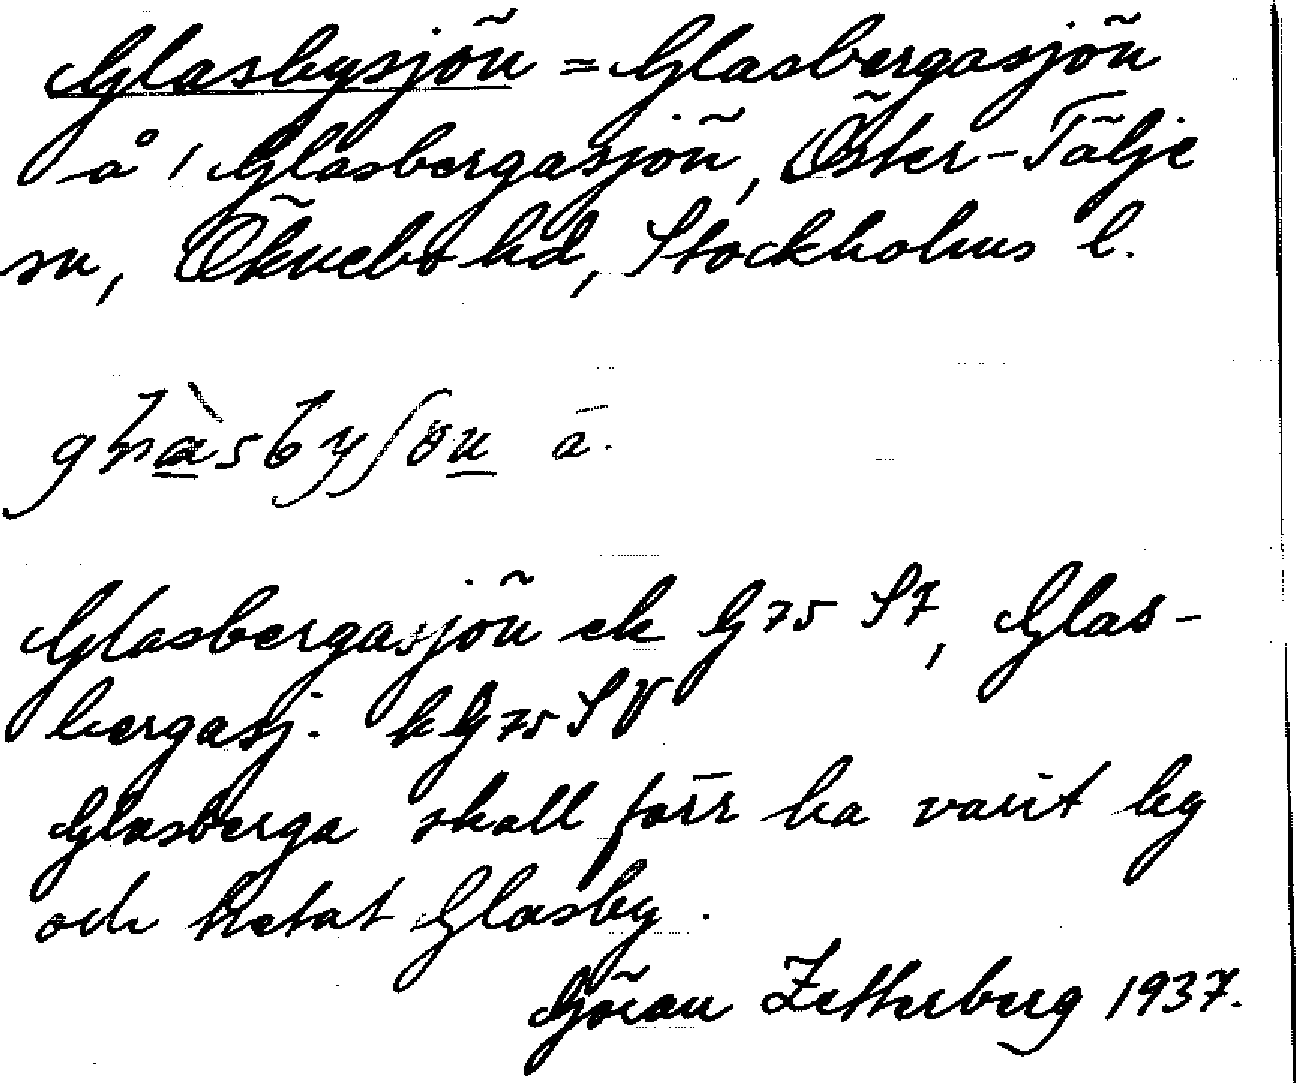 Glasbysjön = Glasbergasjön
å / Glasbergasjön, Öster-Tälje
sn, Öknebo hd, Stockholms l.
Glasbergasjön ek G 75 S7, Glas-
bergasj. k G 75 SV
Glasberga skall förr ha varit by
och hetat Glasby.
Göran Zetterberg 1937.